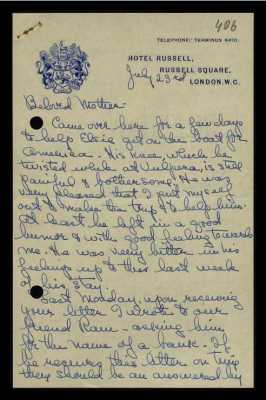 406
TELEPHONE: TERMINUS 9470.
HOTEL RUSSELL,
RUSSELL SQUARE,
LONDON. W.C.
July 23rd
Beloved Mother
Came over here for a few days
to help Elsie get on the boat for
America. His knee, which he
twisted while at Vulpera, is still
painful & bothersome. He was
very pleased that I put myself
out to make the trip & to help him.
At least he left in a good
humor & with good feeling towards
me. He was very bitter in his
feelings up to this last week
of his stay.
Last Monday, upon receiving
your letter I wrote to our
friend Ram - asking him
for the name of a bank. If
he receives this letter on
there should be an answer by